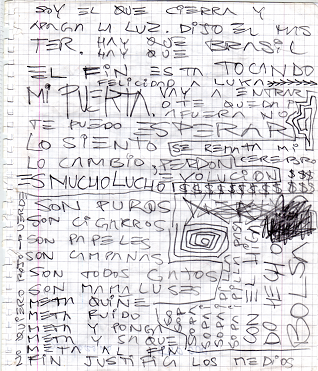 SOY EL QUE CIERRA Y
APAGA LA LUZ. DIJO EL MIS
TER. HAY QUE BRASIL
HAY QUE
EL FIN ESTA TOCANDO
FELICIDAD A LUKA
MI PUERTA. VAY A ENTRAR
O TE QUEDAS
AFUERA NO
TE PUEDO ESPERAR
LO SIENTO SE REMATA MI
LO CAMBIO. PERDON CEREBRO
ES MUCHO LUCHO EVOLUCION $$$
$$$$$$$$$$$$
SON PUROS
SON CIGARROS
SON PAPELES
SON CAMPANAS
SON TODOS GATOS
SON MAMALUSES
META QUINE
META RUIDO
META Y PONGA
META Y SAQUE
META AL FIN
FIN JUSTIFICA LOS MEDIOS
SOPAPI
SOPAPI
SOPAPI
CON EL HILO
DO TECHO
BOLSA